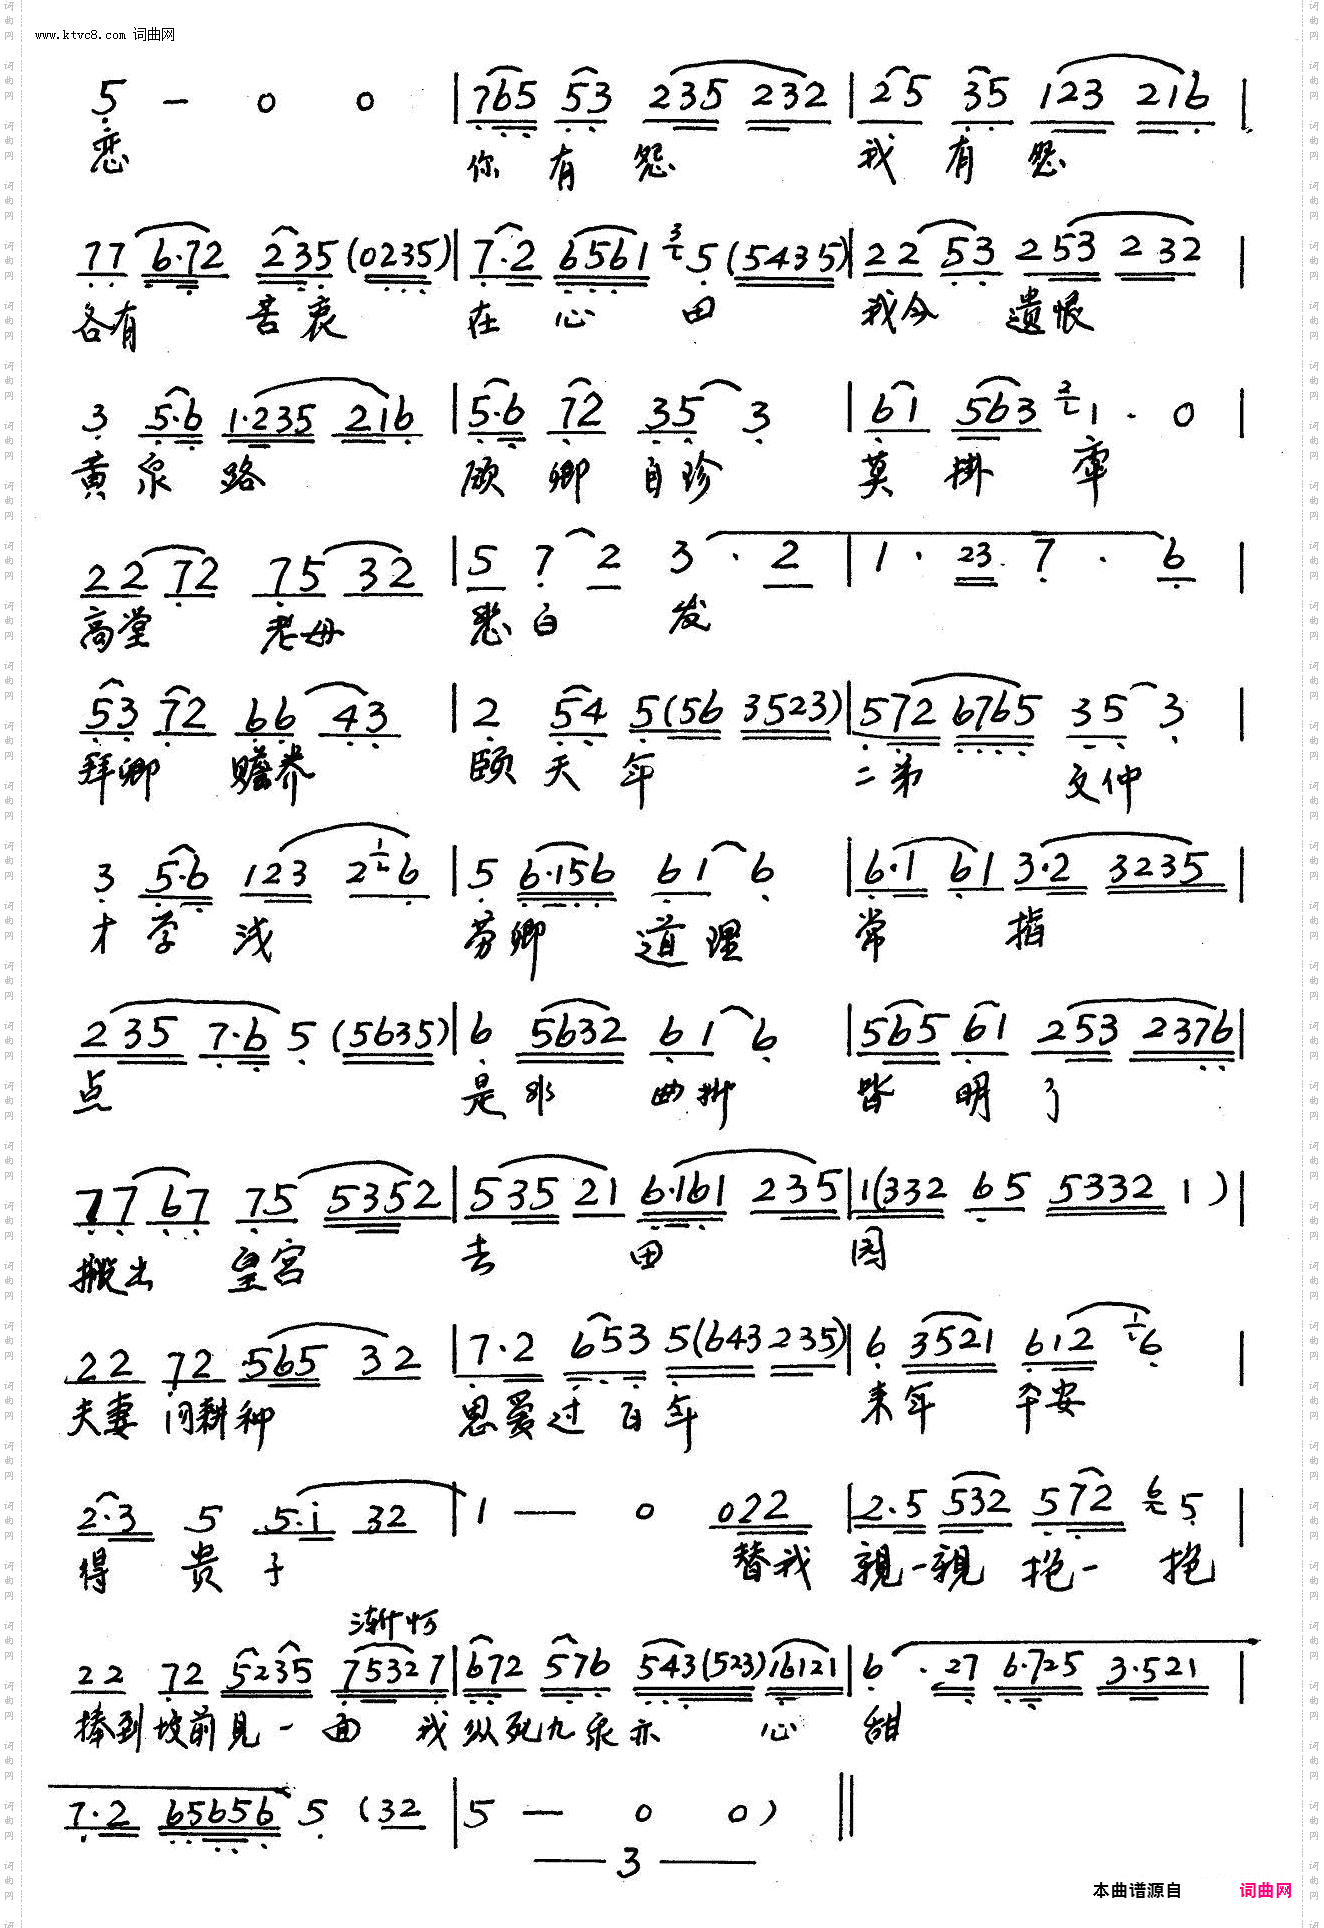 www.ktvc8.com 词曲网
5 - 0 0 | 765 53 235 232 | 25 35 123 216 |
恋 你有怨 我有怨
77 6·72 235 (0235) | 7·2 6561 3 5 (5435) | 22 53 253 232 |
各有 苦衷 在心田 我今 遗恨
3 5·6 1·235 216 | 5·6 72 35 3 | 61 563 2 1 · 0 |
黄泉路 愿卿自珍 莫掛牵
22 72 75 32 | 5 7 2 3 · 2 | 1 · 23 7 · 6 |
高堂 老母 愁白发
53 72 66 43 | 2 54 5 (56 3523) | 572 6765 35 3 |
拜卿 赡养 颐天年 二弟 文仲
3 5·6 123 2 1 6 | 5 6·156 61 6 | 6·1 61 3·2 3235 |
才学浅 劳卿 道理 常指
235 7·6 5 (5635) | 6 5632 61 6 | 565 61 253 2376 |
点 是非 曲折 皆明了
77 67 75 5352 | 535 21 6·161 235 | 1 (332 65 5332 1) |
搬出 皇宫 去田园
22 72 565 32 | 7·2 653 5 (643 235) | 6 3521 612 1 6 |
夫妻同耕种 恩爱过百年 来年 平安
2·3 5 5·i 32 | 1 — 0 022 | 2·5 532 572 6 5 |
得贵子 替我 親一親 抱一抱
渐慢
22 72 5235 75327 | 672 576 543 (523) 16121 | 6 · 27 6·725 3·521 |
捧到坟前见一面 我纵死九泉亦心甜
7·2 65656 5 (32 | 5 — 0 0) ||
— 3 —
本曲谱源自 词曲网